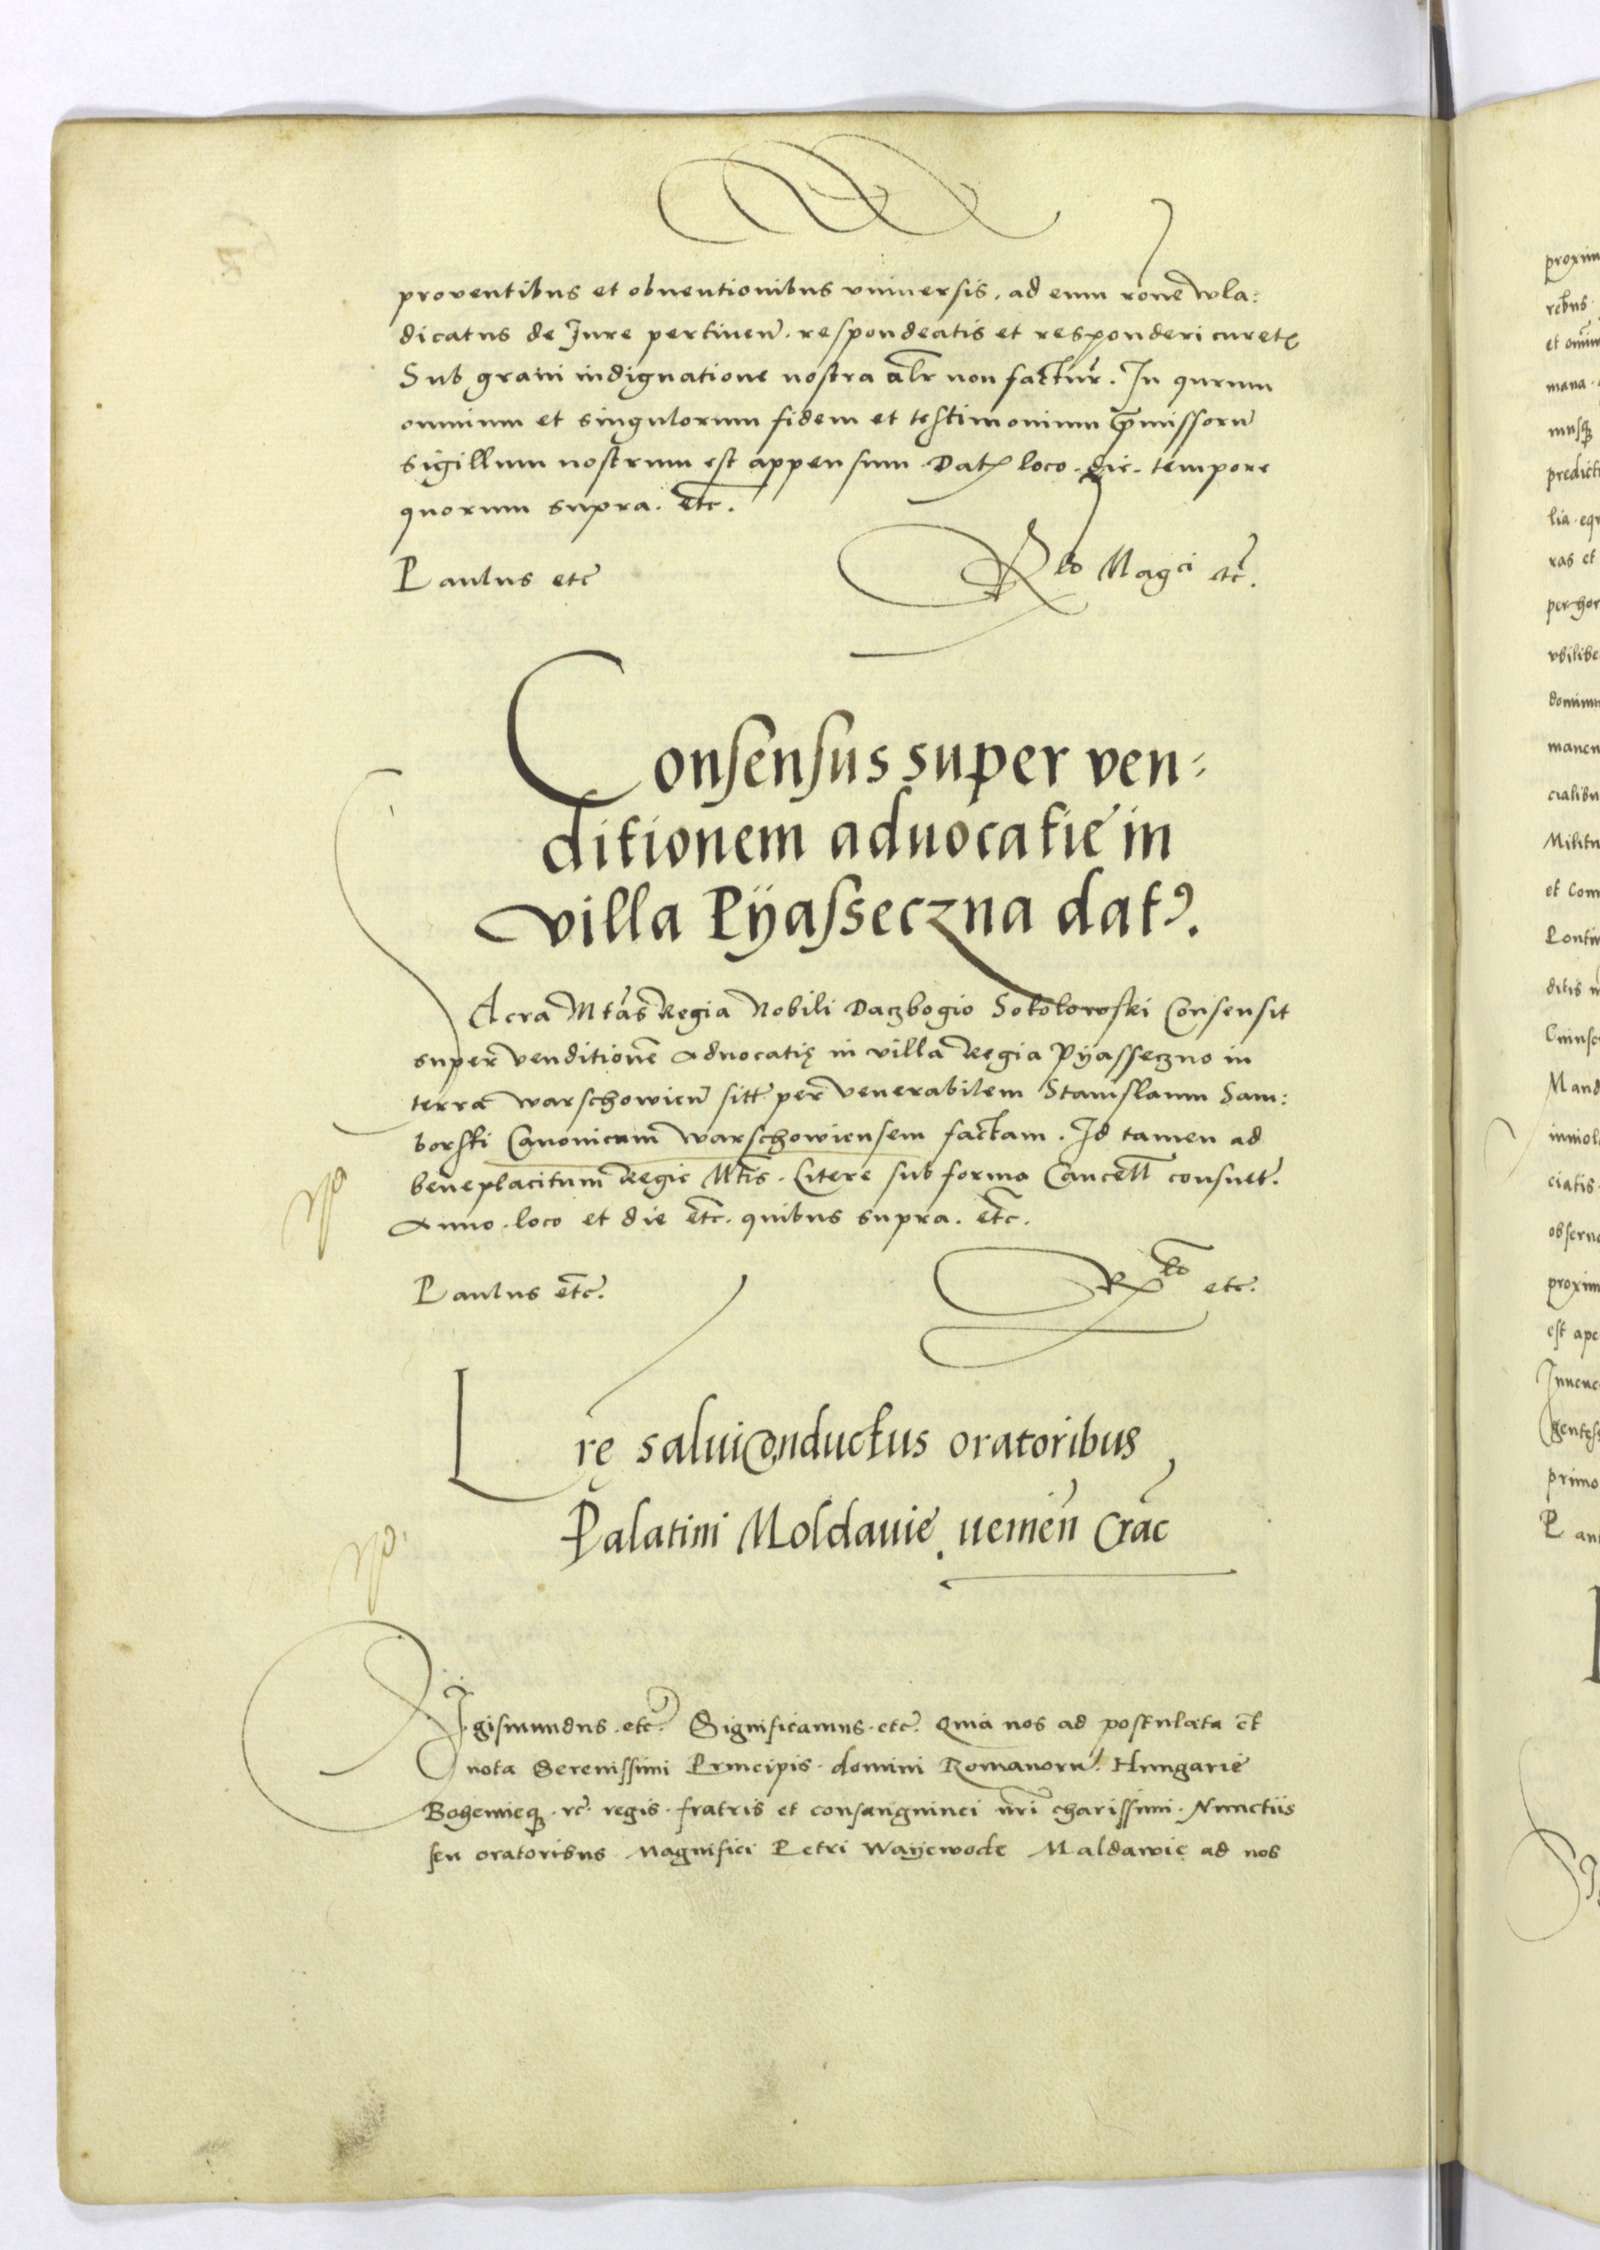 proventibus et obuentionibus vniuersis, ad eum rōne wla:
dicatus de Jure pertinen̄. respondeatis et responderi curetꝭ
Sub graui indignatione nostra alr̄ non factur̄. In quorum
omnium et singulorum fidem et testimonium p̄missorū
sigillum nostrum est appensum. Datꝭ loco. die. tempore
quorum supra. etc̄.
Paulus etc̄
Rlo Magci etc̄.
Consensus super ven:
ditionem aduocatie in
villa Pÿasseczna dat.
Sacra Mtas Regia Nobili Daczbogio Sokolowski Consensit
super venditionē Aduocatię in villa Regia Pÿasseczno in
terra warschowien̄ sitt̄ per venerabilem Stanislaum Sam:
borski Canonicum warschowiensem factam. Id tamen ad
beneplacitum Regie Mtis. Litere sub forma Cancell̄ consuet.
Anno. loco et die etc̄. quibus supra. etc̄.
Paulus etc̄.
Rlo etc.
Lrę saluiconductus oratoribus
Palatini Moldauie. uenien̄ Crac̄
Sigismundus. etc̄. Significamus. etc̄. Quia nos ad postulata et
vota Serenissimi Principis. domini Romanorū. Hungarie
Bohemieq̨. rc̄. regis. fratris et consanguinei nr̄i charissimi. Nunctiis
seu oratoribus Magnifici Petri Wayewode Maldawie ad nos
proxim
rebus
mana
predict
lia
ras et
vbilibe
manen
cialibu
et Com
ditis
Mand
inuiol
ciatis
obserua
proxim
primo